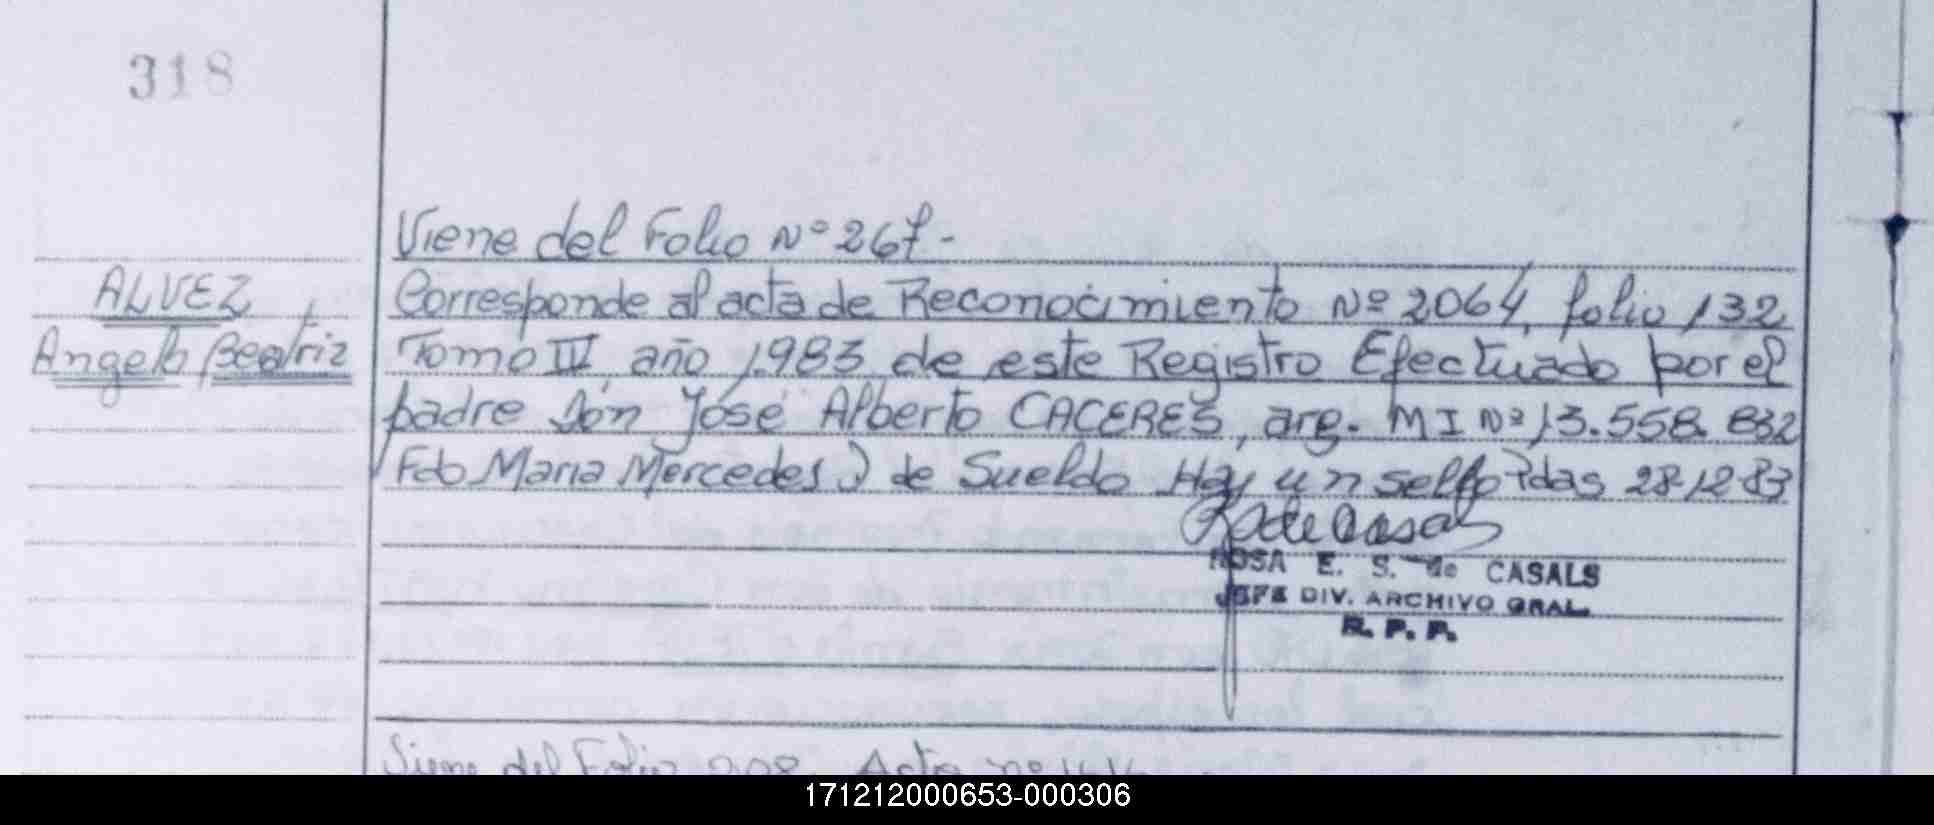 318
Viene del Folio Nº 267.-
ALVEZ
Angela Beatriz
Corresponde al acta de Reconocimiento Nº 2064, folio 132
Tomo III, año 1.983 de este Registro Efectuado por el
padre Don José Alberto CACERES, arg. M I Nº 13.558.832
Fdo Maria Mercedes J de Sueldo Hay un sello Pdas 28-12-83
R de Casals
ROSA E. S. de CASALS
JEFE DIV. ARCHIVO GRAL.
R. P. P.
Viene del Folio
Acta nº 1414
171212000653-000306